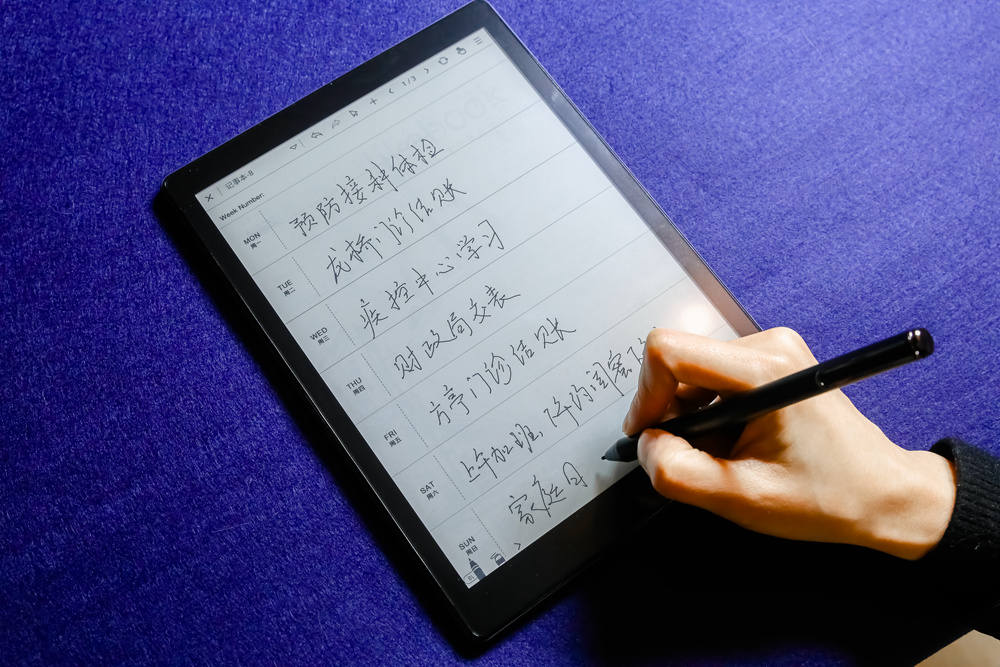 × 记事本-8
1/3
Week Number:
MON
周一
预防接种体检
TUE
周二
龙桥门诊结账
WED
周三
疾控中心学习
THU
周四
财政局交表
FRI
周五
方亭门诊结账
SAT
周六
上午加班,下午约闺蜜
SUN
周日
家庭日